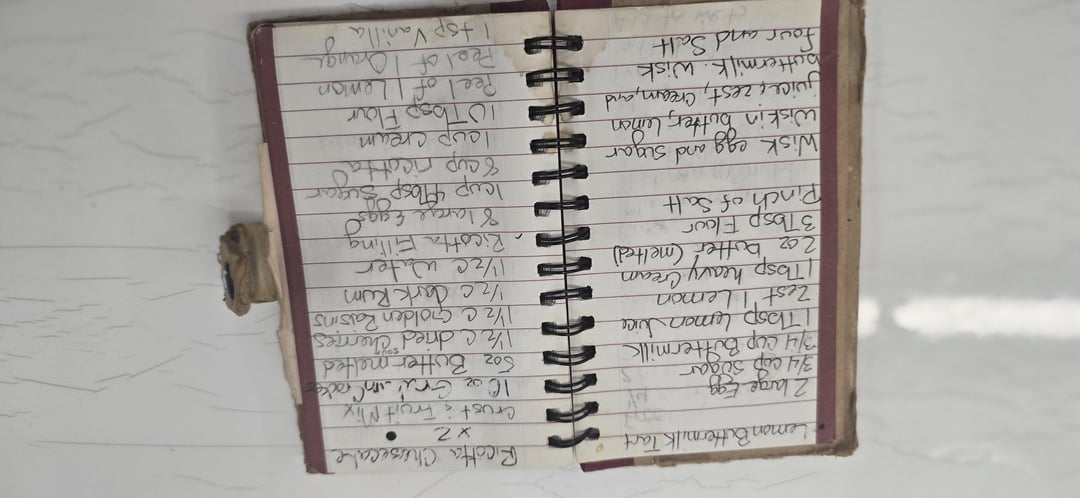 Lemon Buttermilk Tart
2 large Egg
3/4 cup Sugar
3/4 cup Buttermilk
1 Tbsp Lemon Juice
Zest 1 Lemon
1 Tbsp heavy Cream
2oz butter (melted)
3 Tbsp Flour
Pinch of Salt
Wisk egg and sugar
Wisk in butter, Lemon
juice & zest, Cream, and
buttermilk. Wisk
flour and Salt
Ricotta Cheesecake
x 2
Crust & Fruit Mix
10 oz
5oz Butter melted
1 1/2 C dried sour cherries
1 1/2 C Golden Raisins
1/2 C dark Rum
1 1/2 C Water
Ricotta Filling
8 large Eggs
1 cup 4 Tbsp Sugar
8 cup ricotta
1 cup cream
10 Tbsp Flour
Peel of 1 Lemon
Peel of 1 Orange
1 tsp Vanilla